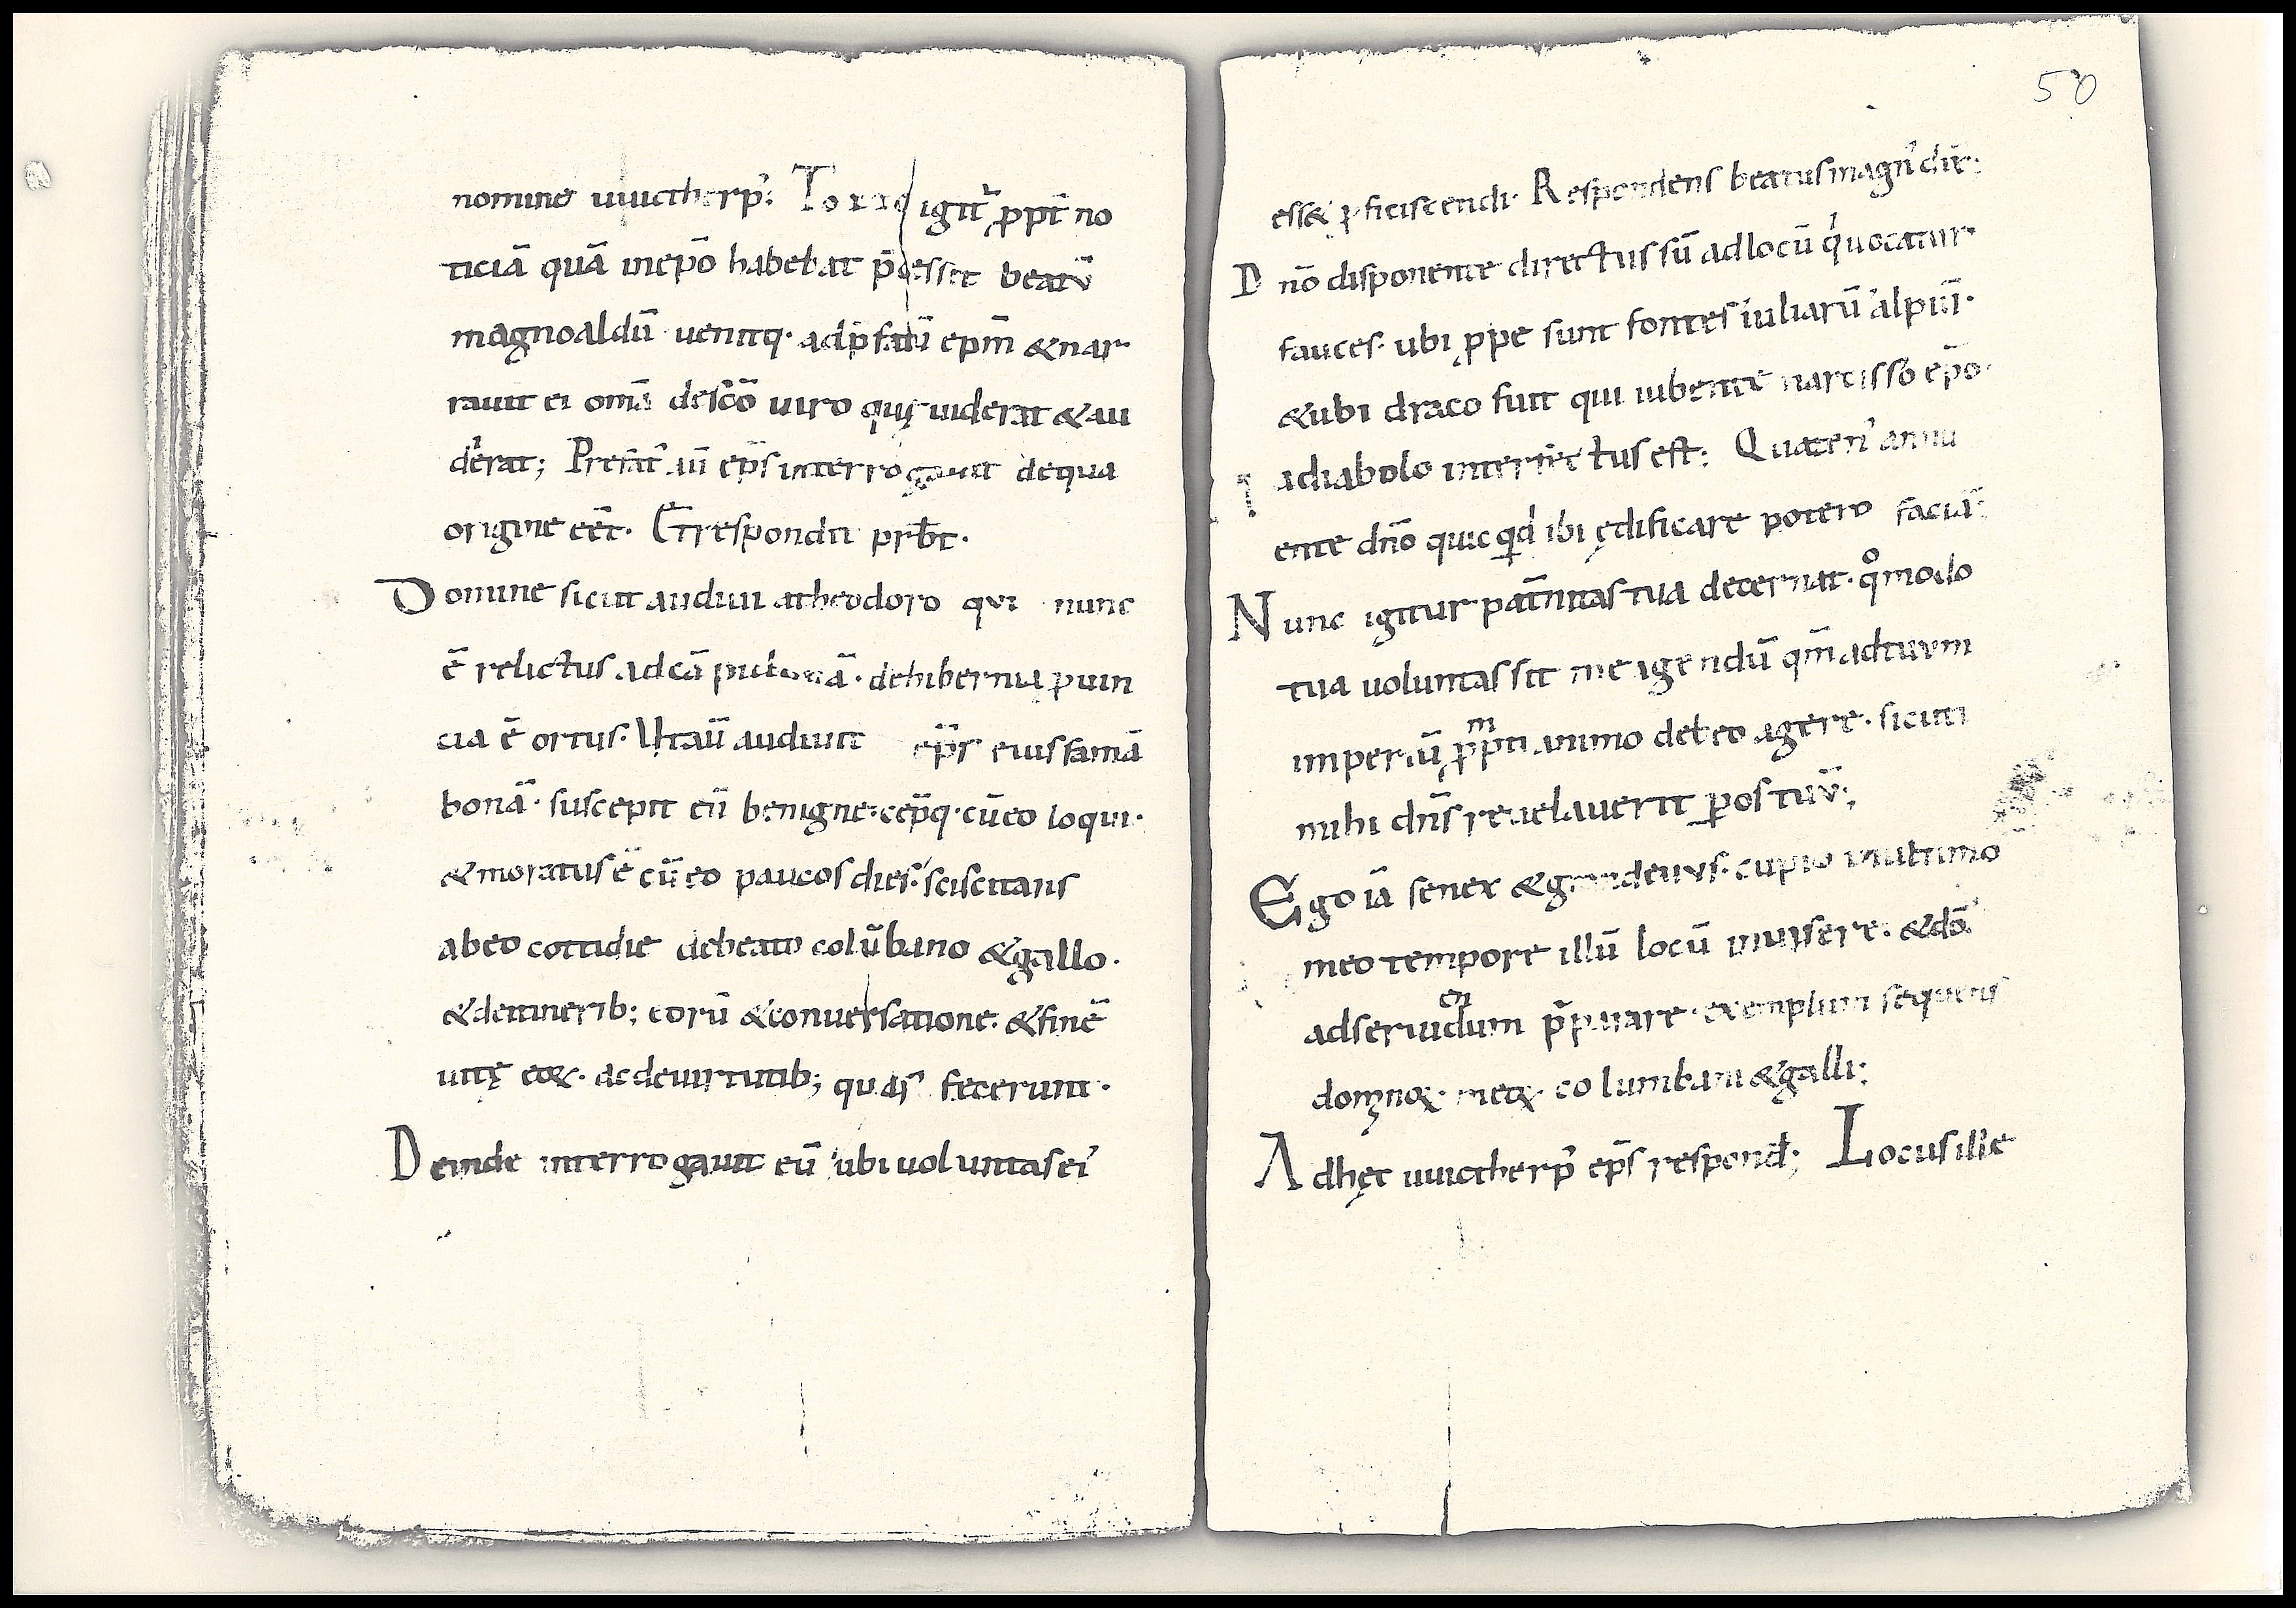 nomine uuictherp᷒; Tozzo igit᷑ ꝓpt̄ no
ticiā quā inep̄o habebat p̄cessit beatū
magnoaldū uenitq· adp̄fatū ep̄m &nar
rauit ei om̄a desc̄o uiro quę uiderat &au
dierat; Prefat᷒ ū ep̄s interrogauit dequa
origine eēt. Et respondit prb̄t·
Domine sicut audiui atheodoro qui nunc
ē relictus adcā pidonā· dehibernia ꝓuin
cia ē ortus. Ut aū audiuit ep̄s eius famā
bonā· suscepit eū benigne· cep̄q· cū eo loqui·
&moratus ē cū eo paucos dies· sciscitans
abeo cottidie debeato colūbano &gallo·
&deitinerib; eorū &conuersatione· &finē
uitę eoꝝ· acdeuirtutib; quas fecerunt·
Deinde interrogauit eū ubi uoluntas ei᷒
50
ess& ꝓficiscendi· Respondens beatus magn᷒ dix̄·
Dn̄o disponente directus sū adlocū qͥ uocatur
fauces· ubi ꝓpe sunt fontes iuliarū alpiū·
&ubi draco fuit qui iubente narcisso ep̄o·
adiabolo interfectus est; Quaten᷒ annu
ente dn̄o quicqͥd ibi ędificare potero faciā·
Nunc igitur pat̄nitas tua decernat· qͦmodo
tua uoluntas sit me agendū qm̄ adtuum
imperiū ꝓmpti animo debeo agere· sicuti
mihi dn̄s reuelauerit ꝑos tuū;
Ego iā senex &grandeuus· cupio inultimo
meo tempore illū locū inuisere· &dō
adseruiendum p̄parare· exemplum sequens
domnoꝝ meoꝝ columbani &galli;
Adhęc uuictherp᷒ ep̄s respond̄; Locus ille